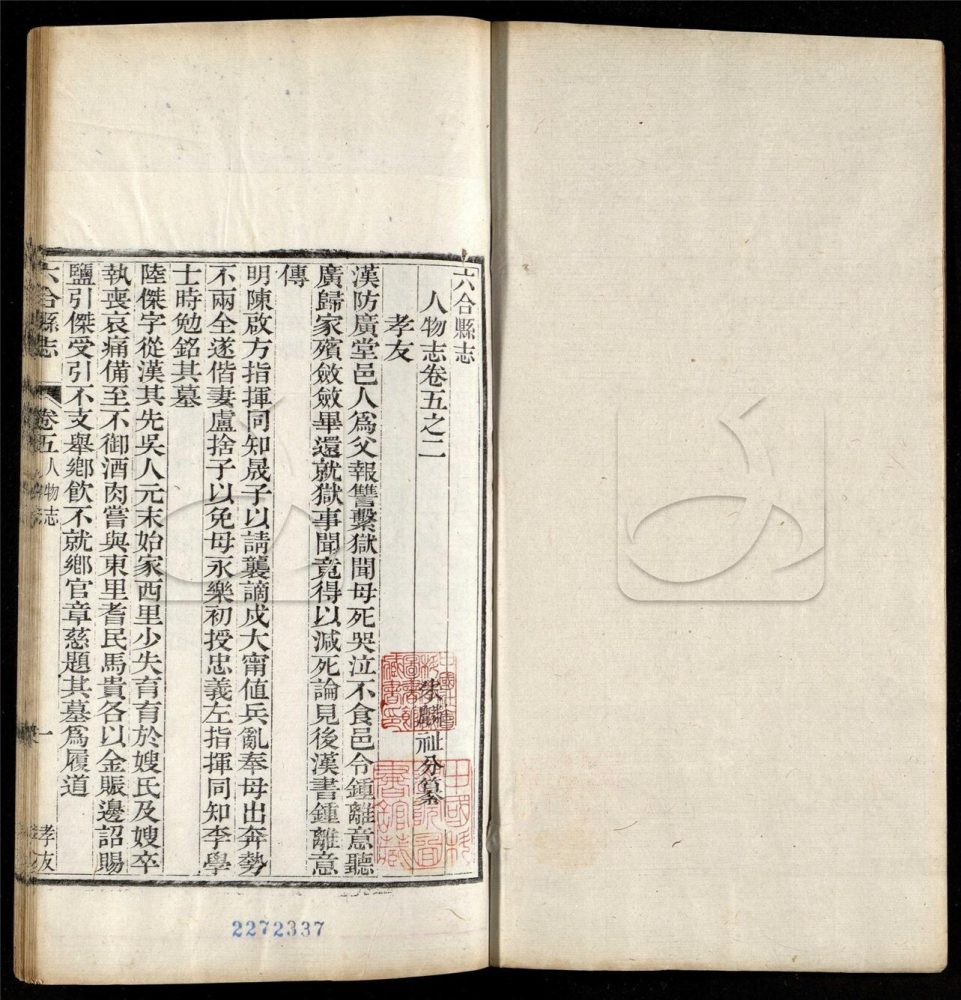 六合縣志
人物志卷五之二
朱麟祉分纂
孝友
漢防廣堂邑人爲父報讐繫獄聞母死哭泣不食邑令鍾離意聽
廣歸家殯斂斂畢還就獄事聞竟得以減死論見後漢書鍾離意
傳
明陳啟方指揮同知晟子以請襲謫戍大甯值兵亂奉母出奔勢
不兩全遂偕妻盧捨子以免母永樂初授忠義左指揮同知李學
士時勉銘其墓
陸傑字從漢其先吳人元末始家西里少失育育於嫂氏及嫂卒
執喪哀痛備至不御酒肉嘗與東里耆民馬貴各以金賑邊詔賜
鹽引傑受引不支舉鄉飲不就鄉官章慈題其墓爲履道
六合縣志
卷五
人物志
一
孝友
2272337